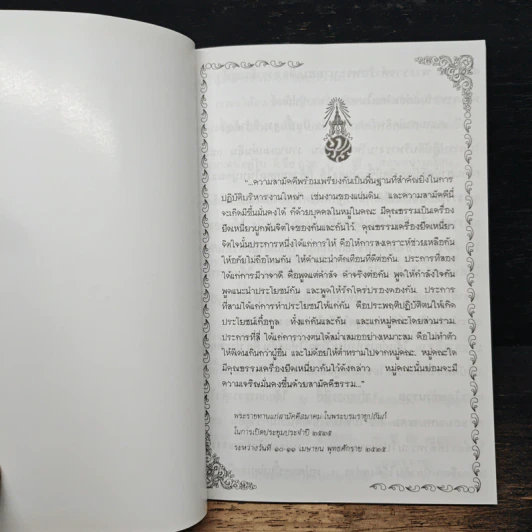 "...ความสามัคคีพร้อมเพรียงกันเป็นพื้นฐานที่สำคัญยิ่งในการ
ปฏิบัติบริหารงานใหญ่ๆ เช่นงานของแผ่นดิน. และความสามัคคีนี้
จะเกิดมีขึ้นมั่นคงได้ ก็ด้วยบุคคลในหมู่ในคณะ มีคุณธรรมเป็นเครื่อง
ยึดเหนี่ยวผูกพันจิตใจของกันและกันไว้. คุณธรรมเครื่องยึดเหนี่ยว
จิตใจนั้นประการหนึ่งได้แก่การให้ คือให้การสงเคราะห์ช่วยเหลือกัน
ให้อภัยไม่ถือโทษกัน ให้คำแนะนำตักเตือนที่ดีต่อกัน. ประการที่สอง
ได้แก่การมีวาจาดี คือพูดแต่คำสัจ คำจริงต่อกัน พูดให้กำลังใจกัน
พูดแนะนำประโยชน์กัน และพูดให้รักใคร่ปรองดองกัน. ประการ
ที่สามได้แก่การทำประโยชน์ให้แก่กัน คือประพฤติปฏิบัติตนให้เกิด
ประโยชน์เกื้อกูล ทั้งแก่กันและกัน และแก่หมู่คณะโดยส่วนรวม.
ประการที่สี่ ได้แก่การวางตนได้สม่ำเสมออย่างเหมาะสม คือไม่ทำตัว
ให้ดีเด่นเกินกว่าผู้อื่น และไม่ด้อยให้ต่ำทรามไปจากหมู่คณะ. หมู่คณะใด
มีคุณธรรมเครื่องยึดเหนี่ยวกันไว้ดังกล่าว หมู่คณะนั้นย่อมจะมี
ความเจริญมั่นคงขึ้นด้วยสามัคคีธรรม..."
พระราชทานแก่สามัคคีสมาคม ในพระบรมราชูปถัมภ์
ในการเปิดประชุมประจำปี ๒๕๒๕
ระหว่างวันที่ ๑๐-๑๑ เมษายน พุทธศักราช ๒๕๒๕